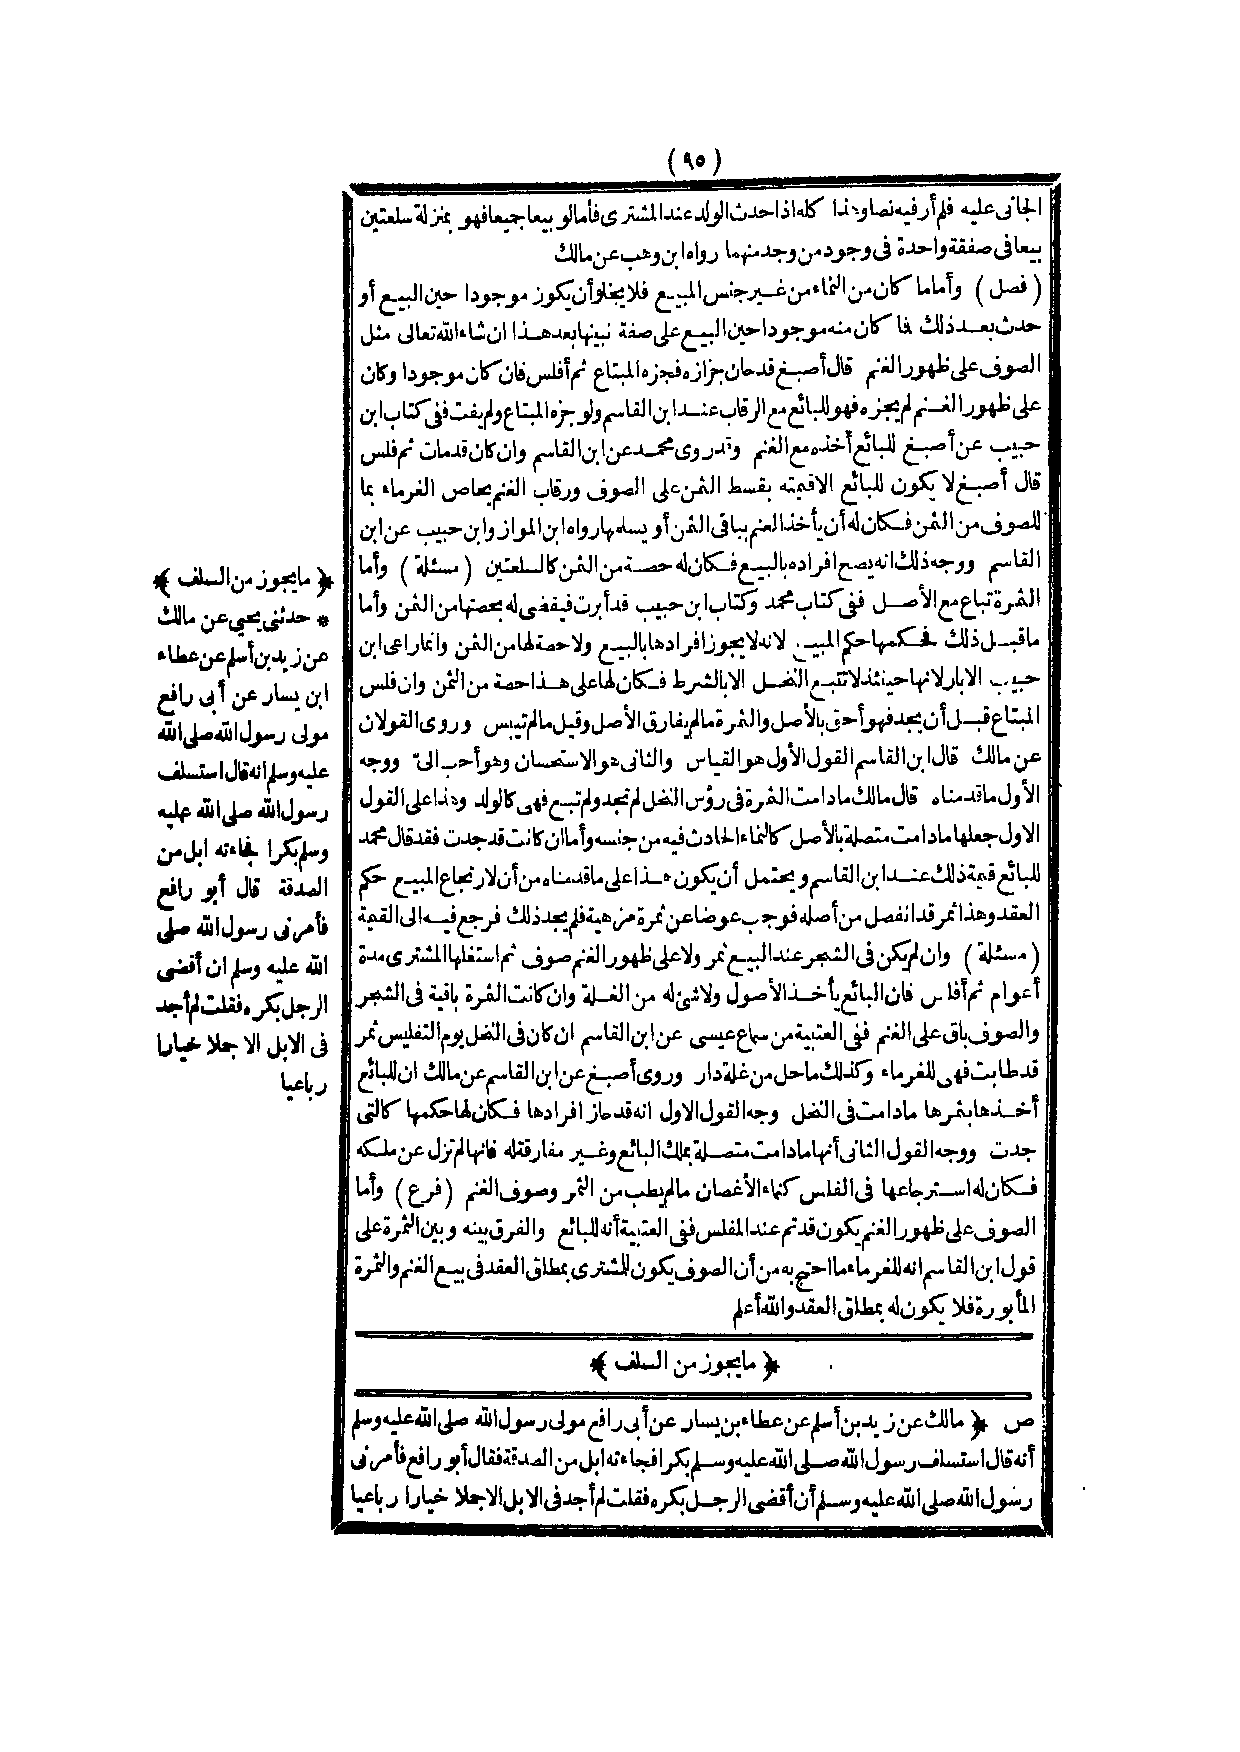 ( ٩٥ )
الجانى عليه فلم أر فيه نصا وهذا كله اذا حدث الولد عند المشترى فأما لو بيعا جميعا فهو بمنزلة سلعتين
بيعا فى صفقة واحدة فى وجود من وجد منهما رواه ابن وهب عن مالك
( فصل ) وأما ما كان من النماء من غير جنس المبيع فلا يخلو أن يكون موجودا حين البيع أو
حدث بعد ذلك فما كان منه موجودا حين البيع على صفة نبينها بعد هذا ان شاء الله تعالى مثل
الصوف على ظهور الغنم قال أصبغ قد حان جزازه فجزه المبتاع ثم أفلس فان كان موجودا وكان
على ظهور الغنم لم يجزه فهو للبائع مع الرقاب عند ابن القاسم ولو جزه المبتاع ولم يفت ففى كتاب ابن
حبيب عن أصبغ للبائع أخذه مع الغنم وقد روى محمد عن ابن القاسم وان كان قد مات ثم فلس
قال أصبغ لا يكون للبائع الا قيمته بقسط الثمن على الصوف ورقاب الغنم يحاص الغرماء بما
للصوف من الثمن فكان له أن يأخذ الغنم بباقى الثمن أو يسلمها رواه ابن المواز وابن حبيب عن ابن
القاسم ووجه ذلك انه يصح افراده بالبيع فكان له حصة من الثمن كالسلعتين ( مسئلة ) وأما
الثمرة تباع مع الأصل ففى كتاب محمد وكتاب ابن حبيب قد أبرت فيقضى له بحصتها من الثمن وأما
ما قبل ذلك فحكمها حكم المبيع لانه لا يجوز افرادها بالبيع ولا حصة لها من الثمن وانما راعى ابن
حبيب الابار لانها حينئذ لا تتبع النخل الا بالشرط فكان لها على هذا حصة من الثمن وان فلس
المبتاع قبل أن يجد فهو أحق بالأصل والثمرة ما لم يفارق الأصل وقيل ما لم تيبس وروى القولان
عن مالك قال ابن القاسم القول الأول هو القياس والثانى هو الاستحسان وهو أحب الىّ ووجه
الأول ما قدمناه قال مالك ما دامت الثمرة فى رؤس النخل لم تجد ولم تبع فهى كالولد وهذا على القول
الاول جعلها ما دامت متصلة بالأصل كالنماء الحادث فيه من جنسه وأما ان كانت قد جدت فقد قال محمد
للبائع قيمة ذلك عند ابن القاسم ويحتمل أن يكون هذا على ما قدمناه من أن لارتجاع المبيع حكم
العقد وهذا ثمر قد انفصل من أصله فوجب عوضا عن ثمرة مزهية فلم يجد ذلك فرجع فيه الى القيمة
( مسئلة ) وان لم يكن فى الشجر عند البيع ثمر ولا على ظهور الغنم صوف ثم استغلها المشترى مدة
أعوام ثم أفلس فان البائع يأخذ الأصول ولا شئ له من الغلة وان كانت الثمرة باقية فى الشجر
والصوف باق على الغنم ففى العتبية من سماع عيسى عن ابن القاسم ان كان فى النخل يوم التفليس ثمر
قد طابت فهى للغرماء وكذلك ما حل من غلة دار وروى أصبغ عن ابن القاسم عن مالك ان للبائع
أخذها بثمرها ما دامت فى النخل وجه القول الاول انه قد جاز افرادها فكان لها حكمها كالتى
جدت ووجه القول الثانى أنها ما دامت متصلة بملك البائع وغير مفارقة له فانها لم تزل عن ملكه
فكان له استرجاعها فى الفلس كنماء الأغصان ما لم يطب من الثمر وصوف الغنم ( فرع ) وأما
الصوف على ظهور الغنم يكون قد تم عند المفلس ففى العتبية أنه للبائع والفرق بينه وبين الثمرة على
قول ابن القاسم انه للغرماء ما احتج به من أن الصوف يكون للمشترى بمطلق العقد فى بيع الغنم والثمرة
المأبورة فلا يكون له بمطلق العقد والله أعلم
﴿ ما يجوز من السلف ﴾
ص ﴿ مالك عن زيد بن أسلم عن عطاء بن يسار عن أبى رافع مولى رسول الله صلى الله عليه وسلم
أنه قال استسلف رسول الله صلى الله عليه وسلم بكرا فجاءته ابل من الصدقة فقال أبو رافع فأمرنى
رسول الله صلى الله عليه وسلم أن أقضى الرجل بكره فقلت لم أجد فى الابل الا جملا خيارا رباعيا
﴿ ما يجوز من السلف ﴾
* حدثنى يحيى عن مالك
عن زيد بن أسلم عن عطاء
ابن يسار عن أبى رافع
مولى رسول الله صلى الله
عليه وسلم انه قال استسلف
رسول الله صلى الله عليه
وسلم بكرا فجاءته ابل من
الصدقة قال أبو رافع
فأمرنى رسول الله صلى
الله عليه وسلم ان أقضى
الرجل بكره فقلت لم أجد
فى الابل الا جملا خيارا
رباعيا